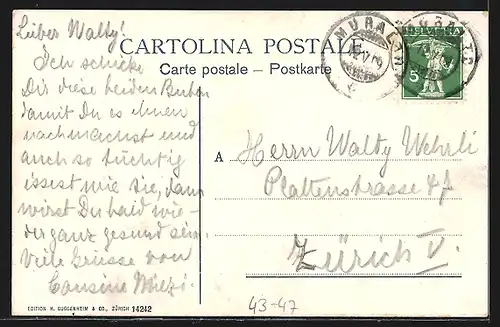 Lieber Walty!
Ich schicke
Dir diese beiden Buben
damit Du es ihnen
nachmachst und
auch so tüchtig
issest wie sie, dann
wirst Du bald wie-
der ganz gesund sein.
Viele Grüsse von
Cousine Miezi.
CARTOLINA POSTALE
Carte postale – Postkarte
MURALTO
HELVETIA
5
A Herrn Walty Wehrli
Plattenstrasse
Zürich V.
EDITION H. GUGGENHEIM & CO., ZÜRICH 14242
43-47